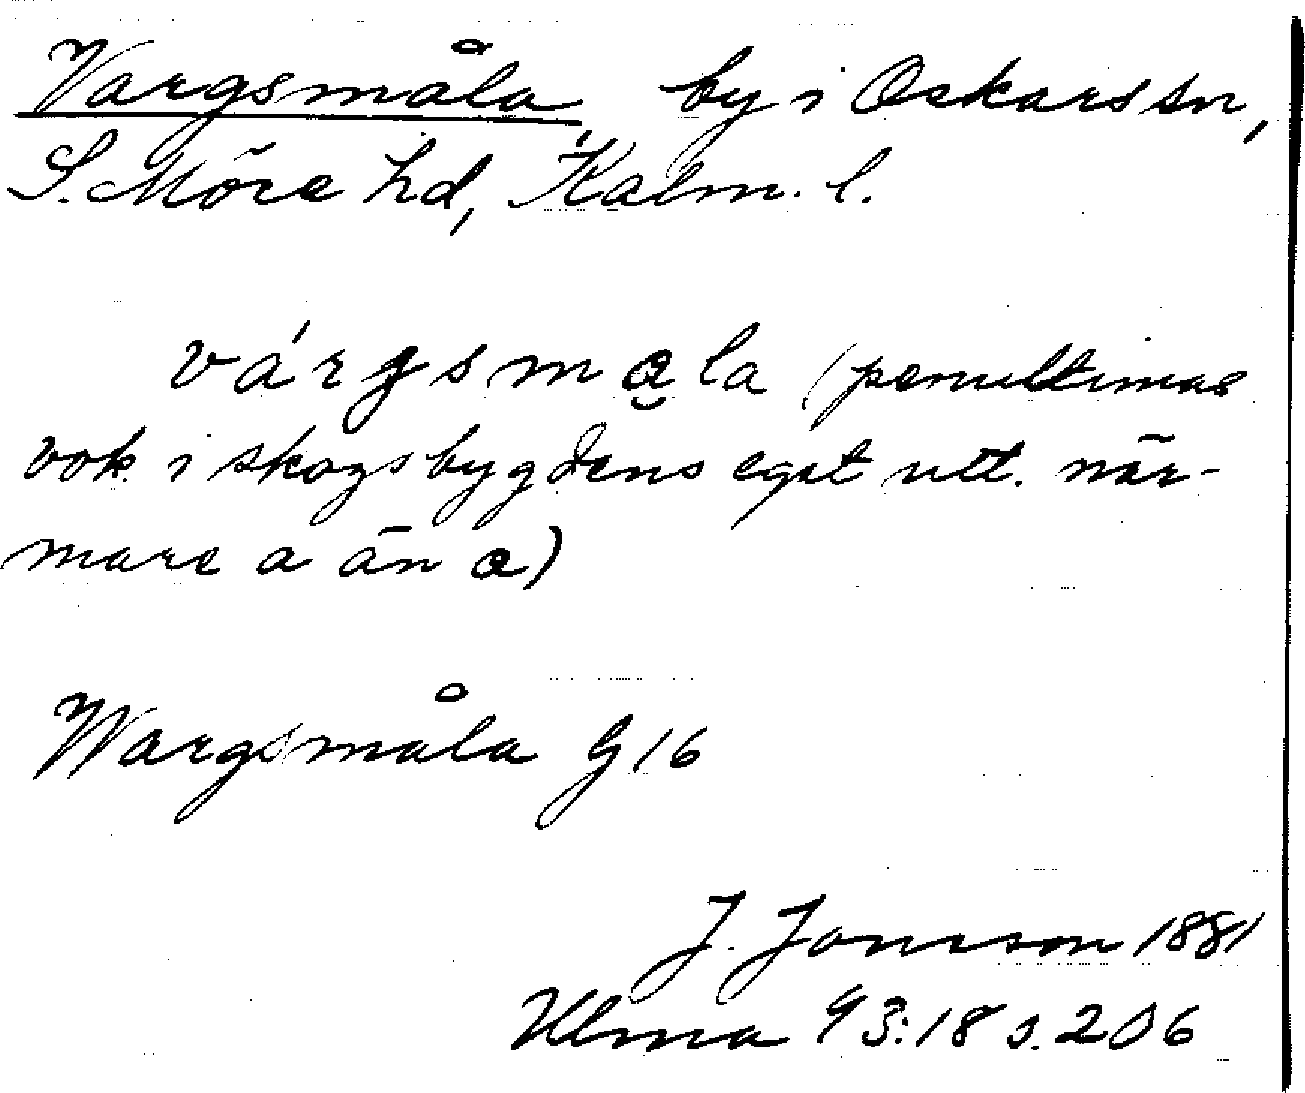 Vargsmåla by i Oskars sn,
S. Möre hd, Kalm. l.
várgsmo̮la (penultimas
vok. i skogsbygdens eget utt. när-
mare a än o)
Wargsmåla G 16
J. Jonsson 1881
Ulma 93:18 s. 206